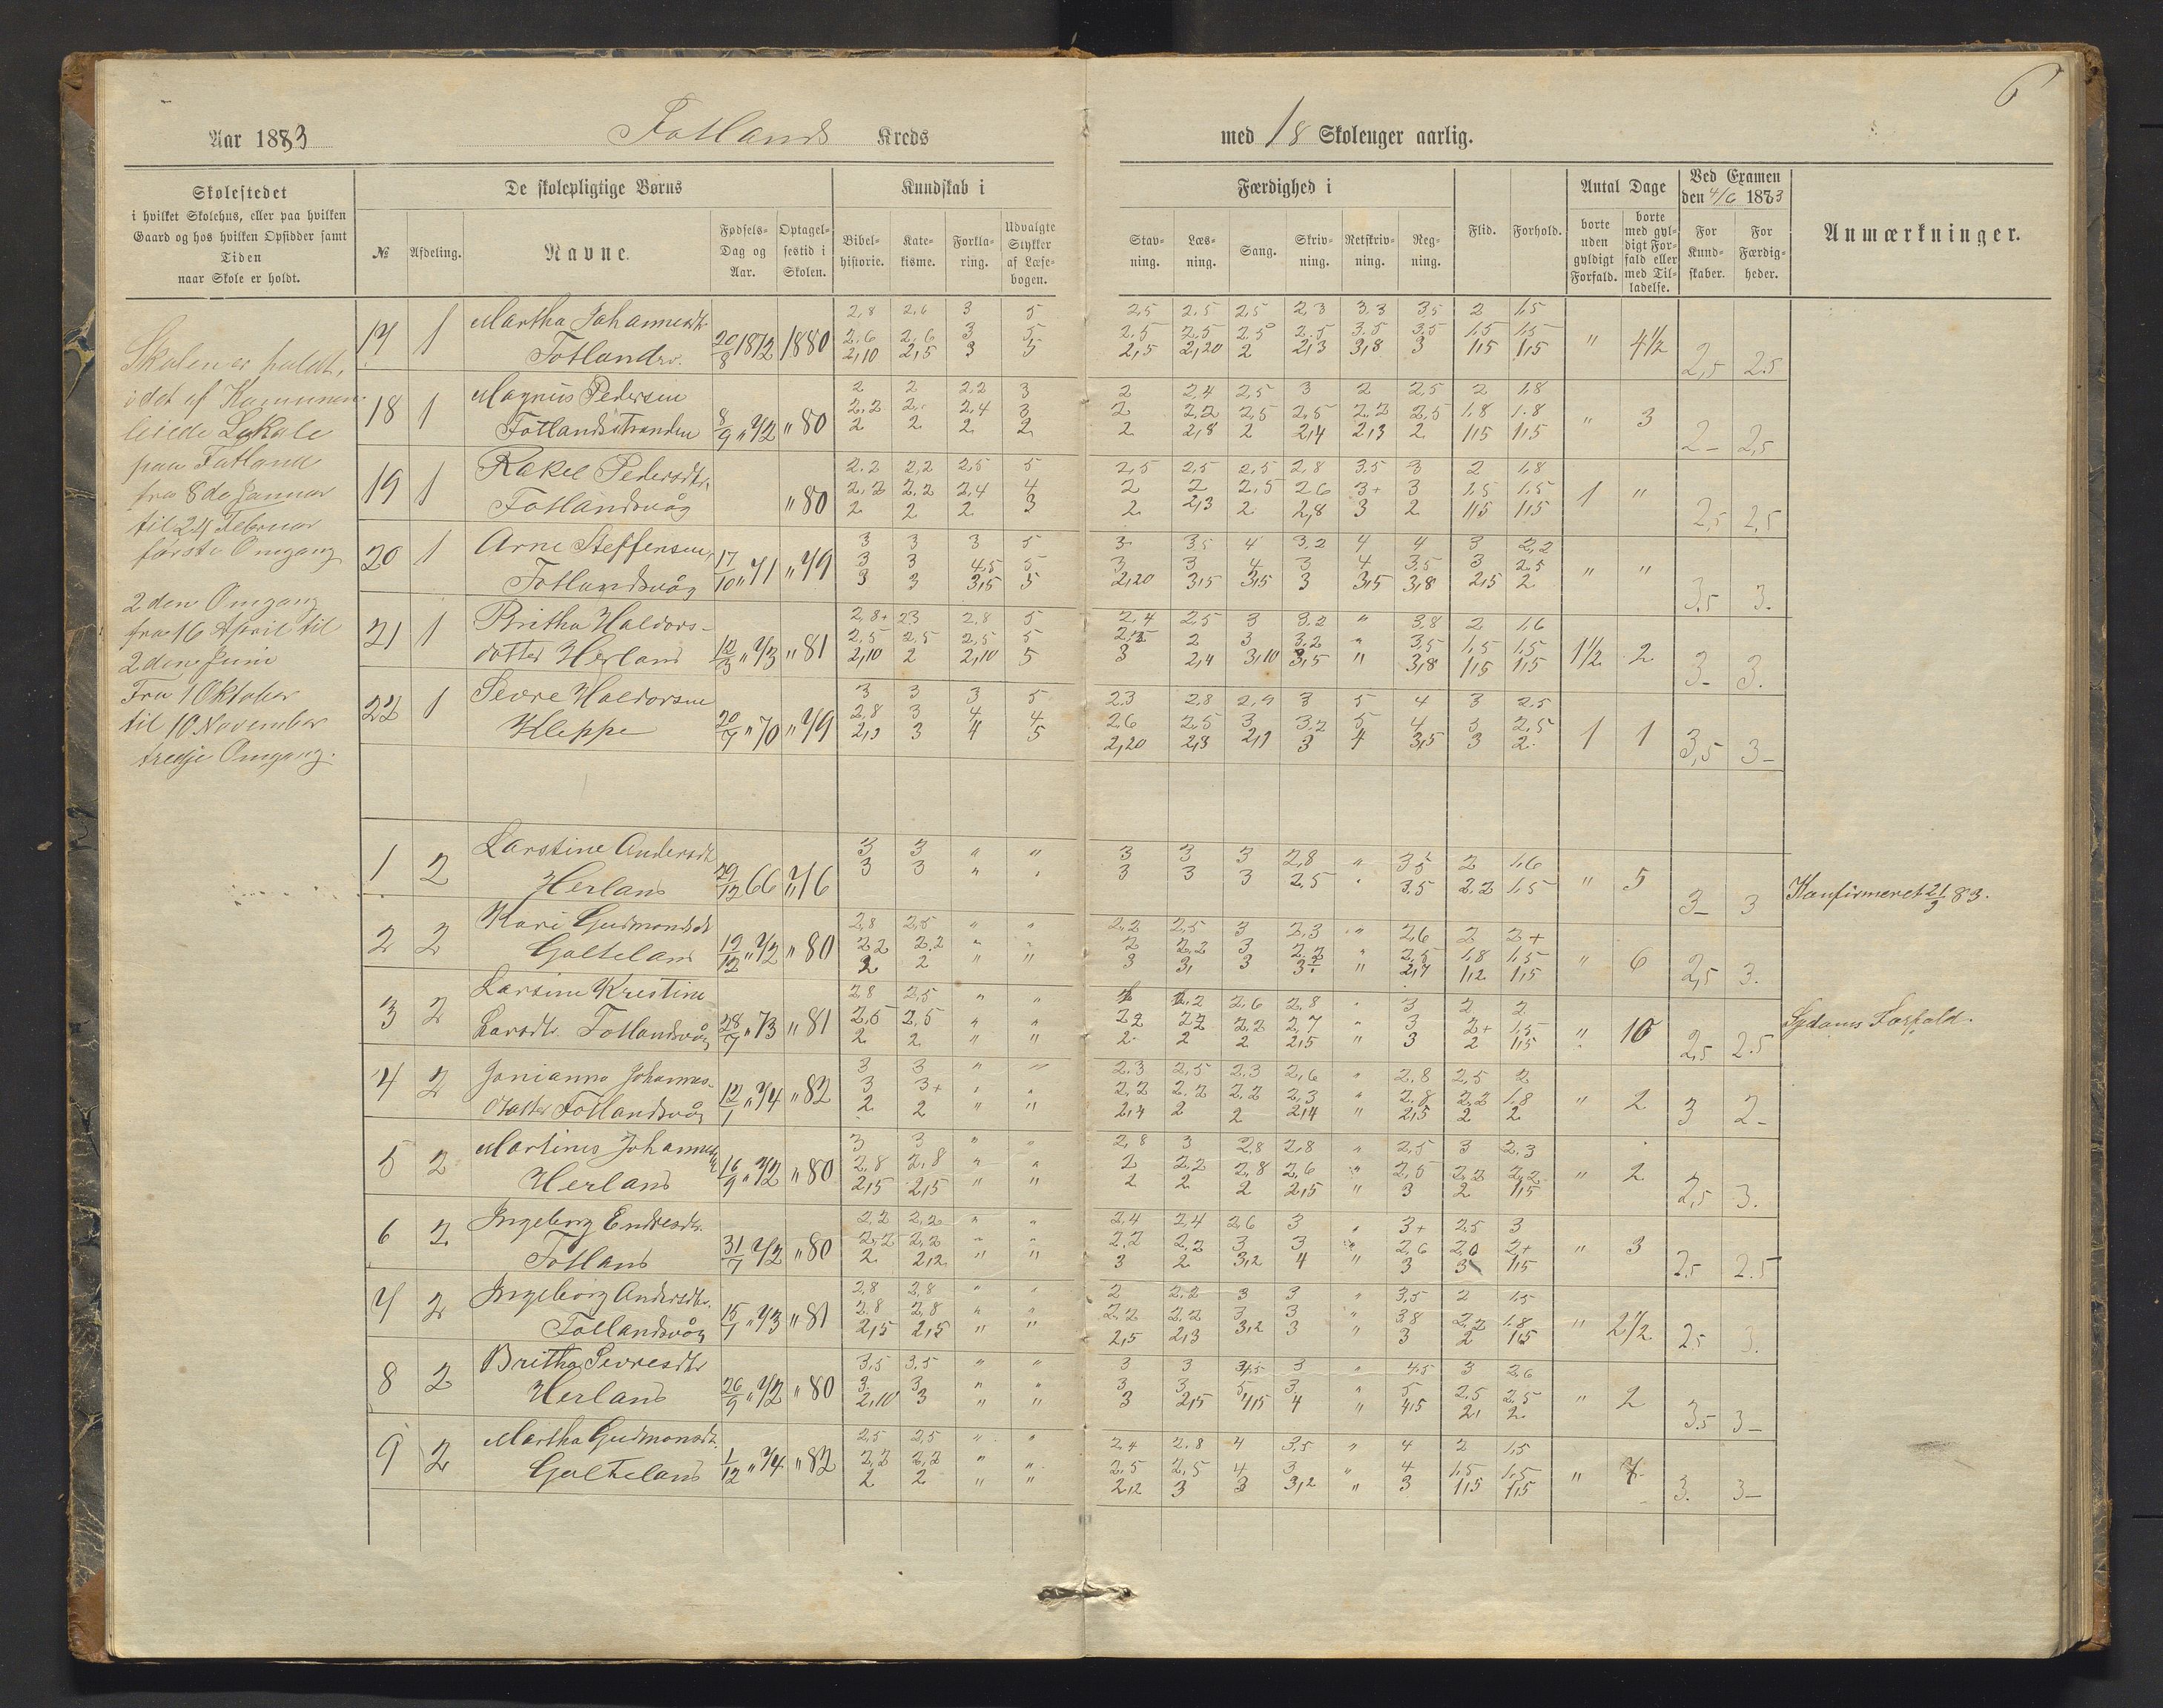 6
Aar 1883
Fotlands Kreds
med 18 Skoleuger aarlig.
Skolestedet
i hvilket Skolehus, eller paa hvilken
Gaard og hos hvilken Opsidder samt
Tiden
naar Skole er holdt.
De skolepligtige Børns
№
Afdeling.
Navne.
Fødsels-
Dag og
Aar.
Optagel-
sestid i
Skolen.
Kundskab i
Bibel-
historie.
Kate-
kisme.
Forkla-
ring.
Udvalgte
Stykker
af Læse-
bogen.
Færdighed i
Stav-
ning.
Læs-
ning.
Sang.
Skriv-
ning.
Retskriv-
ning.
Reg-
ning.
Flid.
Forhold.
Antal Dage
borte
uden
gyldigt
Forfald.
borte
med gyl-
digt For-
fald eller
med Til-
ladelse.
Ved Examen
den 4/6 1883
For
Kund-
skaber.
For
Færdig-
heder.
Anmærkninger.
Skolen er holdt
i det af Kommunen
leiede Lokale
paa Fotland
fra 8de Januar
til 24 Februar
første Omgang
2den Omgang
fra 16 April til
2den Juni
Fra 1 Oktober
til 10 November
tredje Omgang.
17 1 Martha Johannesdtr
Fotlandsv. 20/8 1872 1880
2,8 2,6 3 5 2,5 2,5 2,5 2,3 3.3 3,5 2 1,5
2,6 2,6 3 5 2,5 2,5 2,5 2.5 3.5 3,5 1,5 1,5
2,10 2,5 3 5 2,5 2,20 2 2,3 3,8 3 1,5 1,5 " 4 1/2 2,5 2.5
18 1 Magnus Pedersen
Fotlandstranden 8/9 " 72 " 80
2 2 2,2 3 2 2,4 2,5 3 2 2,5 2 1,8
2,2 2. 2,4 3 2 2,2 2,5 2,5 2,2 2,5 1,8 1.8
2 2 2 2 2 2,8 2 2,4 2,3 2 1,5 1,5 " 3 2- 2,5
19 1 Rakel Pedersdtr.
Fotlandsvåg " 80
2.2 2,2 2,5 5 2,5 2,5 2,5 2,8 3.5 3 2 1,8
2,2 2,2 2,4 4 2 2 2,5 2,6 3+ 3 1,5 1,5
2 2 2 3 2 2,3 2 2,8 3 2 1,5 1,5 1 " 2,5 2,5
20 1 Arne Steffensen,
Fotlandsvåg 17/10 " 71 " 79
3 3 3 5 3 3,5 4 3,2 4 4 3 2,2
3 3 4,5 5 3 3 4 3 4 3,5 3 2,5
3 3 3,5 5 2,20 3,5 3,5 3 3,5 3,8 2,5 2 " " 3.5 3.
21 1 Britha Haldors-
dotter Herland 12/3 " 73 " 81
2,8+ 2,3 2,8 5 2,4 2,5 3 3.2 " 3,8 2 1,6
2,5 2,5 2,5 5 2,5 2 3 3,2 " 3,5 1,5 1,5
2,10 2 2,10 5 3 2,4 3,10 3,5 " 3,8 1,5 1,5 1 1/2 2 3- 3.
22 1 Sevre Haldorsen
Kleppe 20/7 " 70 " 79
3 3 3 5 2,3 2,8 2,9 3 5 4 3 2.5
2,8 3 4 4 2,6 2,5 3 3,2 5 4 3 2,5
2,3 3 4 5 2,20 2,3 2,9 3 4 3,5 3 2 1 1 3,5 3-
1 2 Larstine Andersdt
Herland 29/12 66 " 76
3 3 " " 3 3 3 2,8 " 3 2 1,6
3 3 " " 3 3 3 2,5 " 3.5 2.2 1,5 " 5 3- 3 Konfirmeret 21/3 83.
2 2 Kari Gudmondsdt
Galteland 19/12 " 72 " 80
2,8 2,5 " " 2,2 2,5 3 2,3 " 2,6 2 2+
2,2 2.2 " " 2 2,2 3 2,2 " 2,5 1,8 1,5
2 2 " " 3 3, 3 3 " 2,7 1,2 1,5 " 6 2,5 3.
3 2 Larsine Krestine
Larsdtr. Fotlandsvåg 28/7 " 73 " 81
2,8 2,5 " " 2.2 2,6 2,8 " 3 2 2
2,5 2,5 " " 2,2 2,2 2,2 2,7 " 3 2+ 1,5
2 2 " " 2 2 2 2,5 " 3 2 1,5 " 10 2,5 2.5 Sygdoms Forfald.
4 2 Janianna Johannes-
datter Fotlandsvåg 12/1 " 74 " 82
3 3 " " 2.3 2,5 2.3 2,6 " 2.8 2,5 2
3 3+ " " 2,2 2,2 2,2 2,3 " 2,8 2,2 1,8
2 2 " " 2,4 2 2 2,4 " 2,5 2 2 " 2 3 2-
5 2 Martines Johannessen
Herland 16/9 " 72 " 80
3 3 " " 2,8 3 2,8 2,8 " 2,5 3 2.3
2,8 2,8 " " 2 2,2 2,8 2,6 " 2,5 2,2 2,2
2,5 2,5 " " 2 2 2 2,5 " 3 2 1,5 " 2 2,5 3.
6 2 Ingeborg Endresdtr.
Fotland 31/7 72 " 80
2,2 2,2 " " 2,4 2,4 2,6 3 " 3+ 2,5 3
2,2 2,2 " " 2,2 2,2 3 3 " 2,6 2,0 2+
2 2,2 " " 3 2 3,2 4 " 3 3 1,5 " 3 2.5 2.5
7 2 Ingeborg Andersdtr.
Fotlandsvåg 15/1 " 73 " 81
2,8 2,8 " " 2 2.2 3 3 " 3,5 2 1,5
2,8 2,8 " " 2,2 2,2 3 3 " 3,8 2,2 1,8
2,5 2,5 " " 2,5 2,3 3,2 3 " 3 2 1,5 " 2 1/2 2.5 3.
8 2 Britha Sevresdtr
Herland 26/9 " 72 " 80
3,5 3,5 " " 3 3 3 " 4,5 3 2,6
3 3 " " 3 3 5 3 " 5 2,5 2,5
2,10 3 " " 3 2,5 4,5 4 " 4,5 2, 2 " 2 3.5 3-
9 2 Martha Gudmonsdt.
Galteland 1/12 " 74 " 82
2,5 2,5 " " 2,4 2.8 4 3,5 " 4 2 1,5
2,2 2,2 " " 2,5 2,5 4 3 " 4 1,5 1,5
2 2 " " 2,2 3 3 3,2 " 3 1,5 1,5 " 7 3. 3-